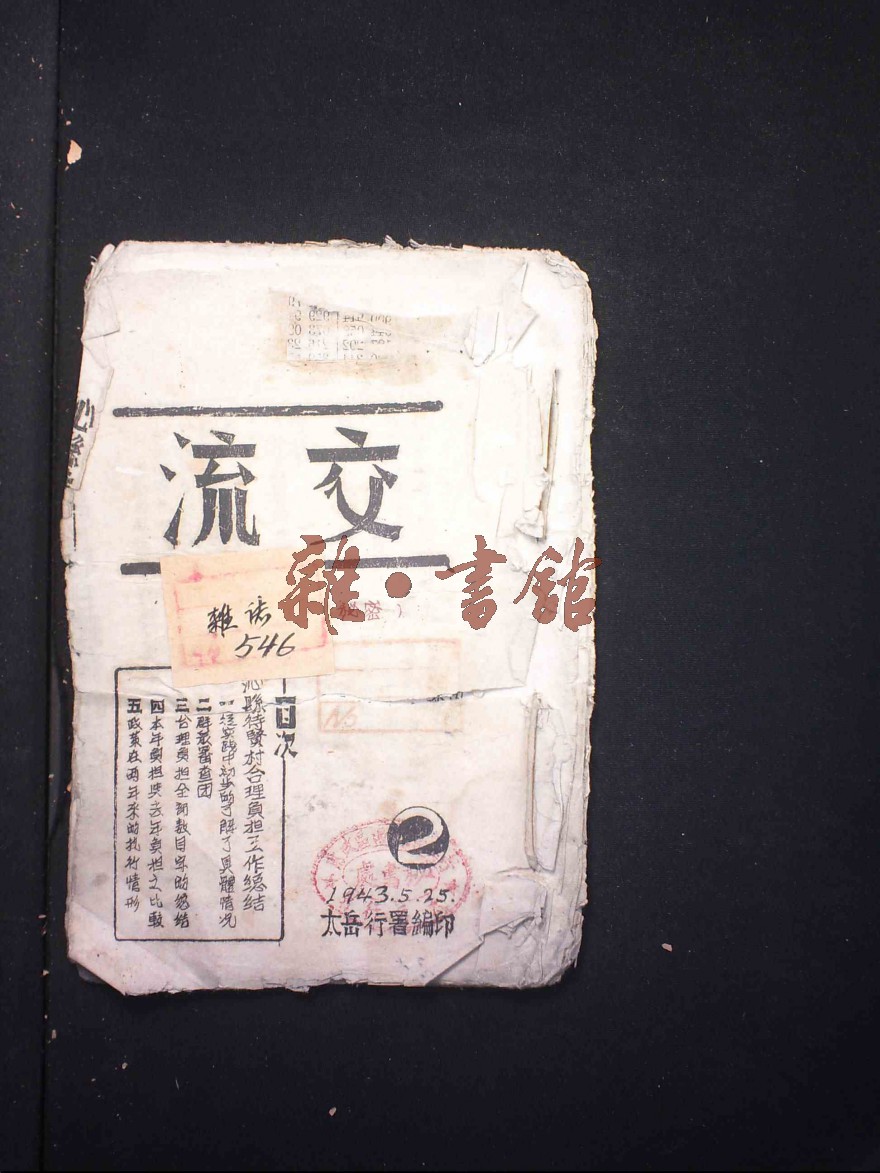 交流
雜·書館
密）
雜志
546
No
目次
沁縣待賢村合理負担工作總结
一 從实践中初步的了解了具體情况
二 群衆審查团
三 合理負担全部数目字的总结
四 本年負担與去年負担之比較
五 政策在两年来的执行情形
2
1943.5.25.
太岳行署編印